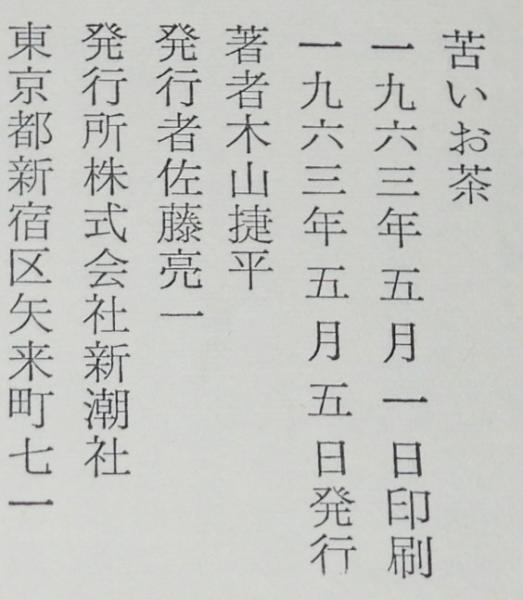 苦いお茶
一九六三年五月一日印刷
一九六三年五月五日発行
著者木山捷平
発行者佐藤亮一
発行所株式会社新潮社
東京都新宿区矢来町七一